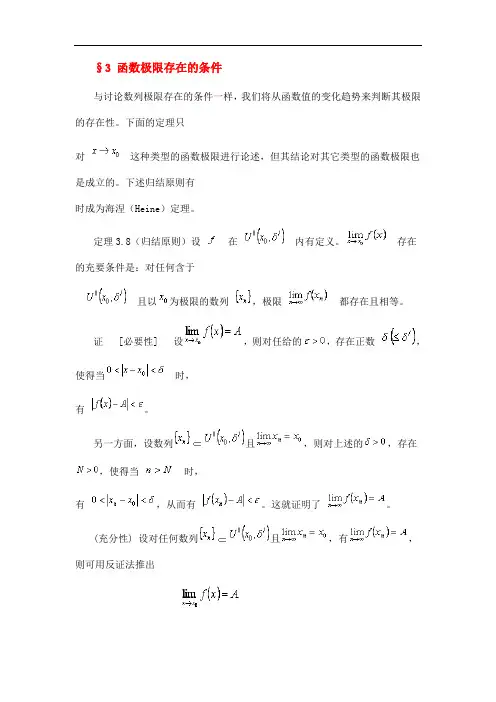 §3 函数极限存在的条件
与讨论数列极限存在的条件一样，我们将从函数值的变化趋势来判断其极限
的存在性。下面的定理只
对 x → x₀ 这种类型的函数极限进行论述，但其结论对其它类型的函数极限也
是成立的。下述归结原则有
时成为海涅（Heine）定理。
定理3.8（归结原则）设 f 在 U⁰(x₀,δ') 内有定义。lim_{x→x₀} f(x) 存在
的充要条件是：对任何含于
U⁰(x₀,δ') 且以 x₀ 为极限的数列 {xₙ}，极限 lim_{n→∞} f(xₙ) 都存在且相等。
证 [必要性] 设 lim_{x→x₀} f(x)=A，则对任给的 ε>0，存在正数 δ(≤δ')，
使得当 0<|x-x₀|<δ 时，
有 |f(x)-A|<ε。
另一方面，设数列{xₙ}⊂U⁰(x₀,δ')且 lim_{n→∞} xₙ=x₀，则对上述的 δ>0，存在
N>0，使得当 n>N 时，
有 0<|xₙ-x₀|<δ，从而有 |f(xₙ)-A|<ε。这就证明了 lim_{n→∞} f(xₙ)=A。
(充分性) 设对任何数列{xₙ}⊂U⁰(x₀,δ')且 lim_{n→∞} xₙ=x₀，有 lim_{n→∞} f(xₙ)=A，
则可用反证法推出
lim_{x→x₀} f(x)=A